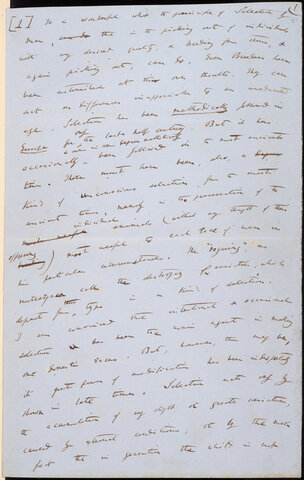 [1] It is wonderful what the principle of Selection by
Man, that is the picking out of individuals
with any desired quality, & breeding from them, &
again picking out, can do. Even Breeders have
been astonished at their own results. They can
act on differences inappreciable to an uneducated
eye. Selection has been methodically followed in
Europe for only the last half century. But it has
occasionally been followed in the most ancient
times. There must have been, also, a
kind of unconscious selection, from the most
ancient times, namely in the preservation of the
individual animals (without any thought of their
offspring) most useful to each race of man in
his particular circumstances. The "rogueing" as
nurserymen call the destroying of varieties, which
depart from their type, is a kind of selection.
I am convinced that intentional & occasional
selection has been the main agent in making
our domestic races. But, however, this may be,
its great power of modification has been indisputably
shown in late times. Selection acts only by
the accumulation of very slight or greater variations,
caused by external conditions, or by the mere
fact that in generation the child is not